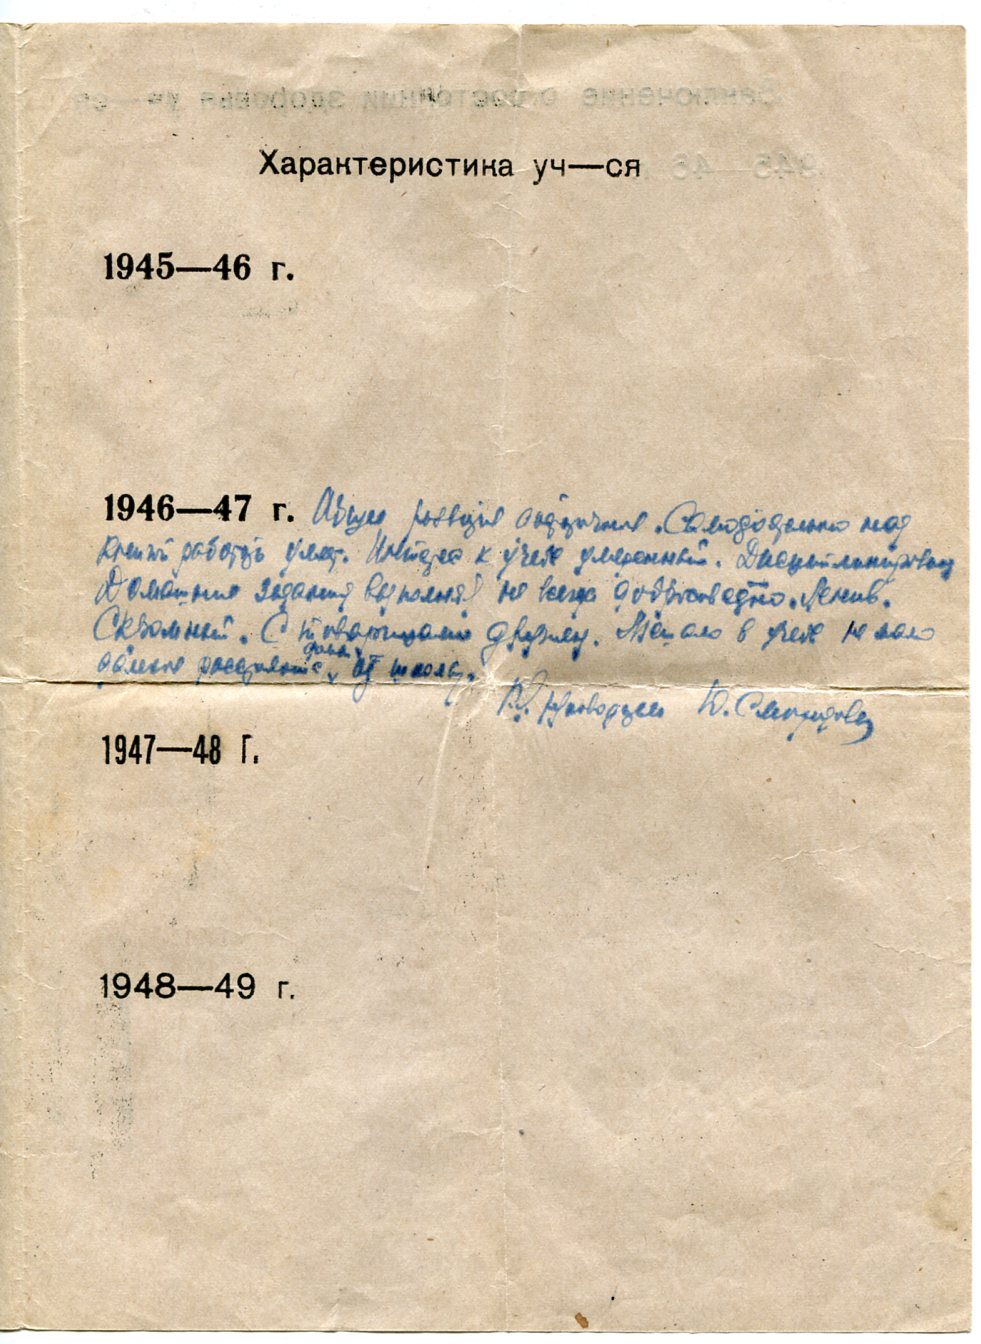 Характеристика уч—ся
1945—46 г.
1946—47 г. Общее развитие достаточное. Самостоятельно над
книгой работать умеет. Интерес к учебе умеренный. Дисциплинирован
Домашние задания выполняет не всегда добросовестно. Ленив.
Скромный. С товарищами дружен. Мешало в учебе не мало
далекое расстояние дома от школы.
Кл. руководитель Ю.
1947—48 Г.
1948—49 г.